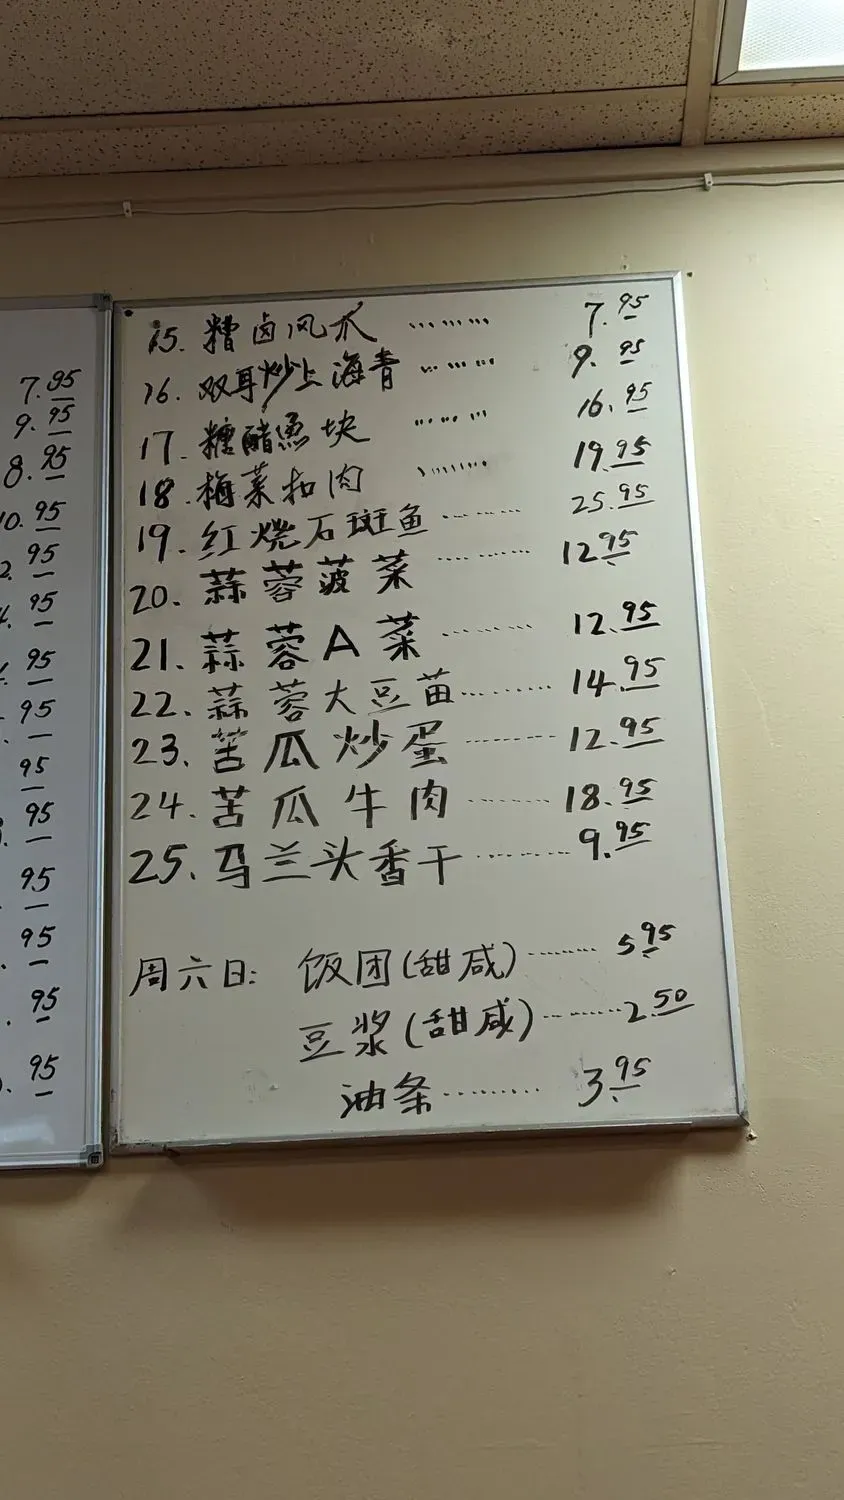 7.95
9.95
8.95
10.95
2.95
4.95
.95
.95
95
.95
.95
.95
.95
.95
15. 糟卤风爪 ......... 7.95
16. 双耳炒上海青 ......... 9.95
17. 糖醋魚块 ......... 16.95
18. 梅菜扣肉 ......... 19.95
19. 红烧石斑鱼 ......... 25.95
20. 蒜蓉菠菜 ......... 12.95
21. 蒜蓉A菜 ......... 12.95
22. 蒜蓉大豆苗 ......... 14.95
23. 苦瓜炒蛋 ......... 12.95
24. 苦瓜牛肉 ......... 18.95
25. 马兰头香干 ......... 9.95
周六日: 饭团(甜咸) ......... 5.95
豆浆(甜咸) ......... 2.50
油条 ......... 3.95